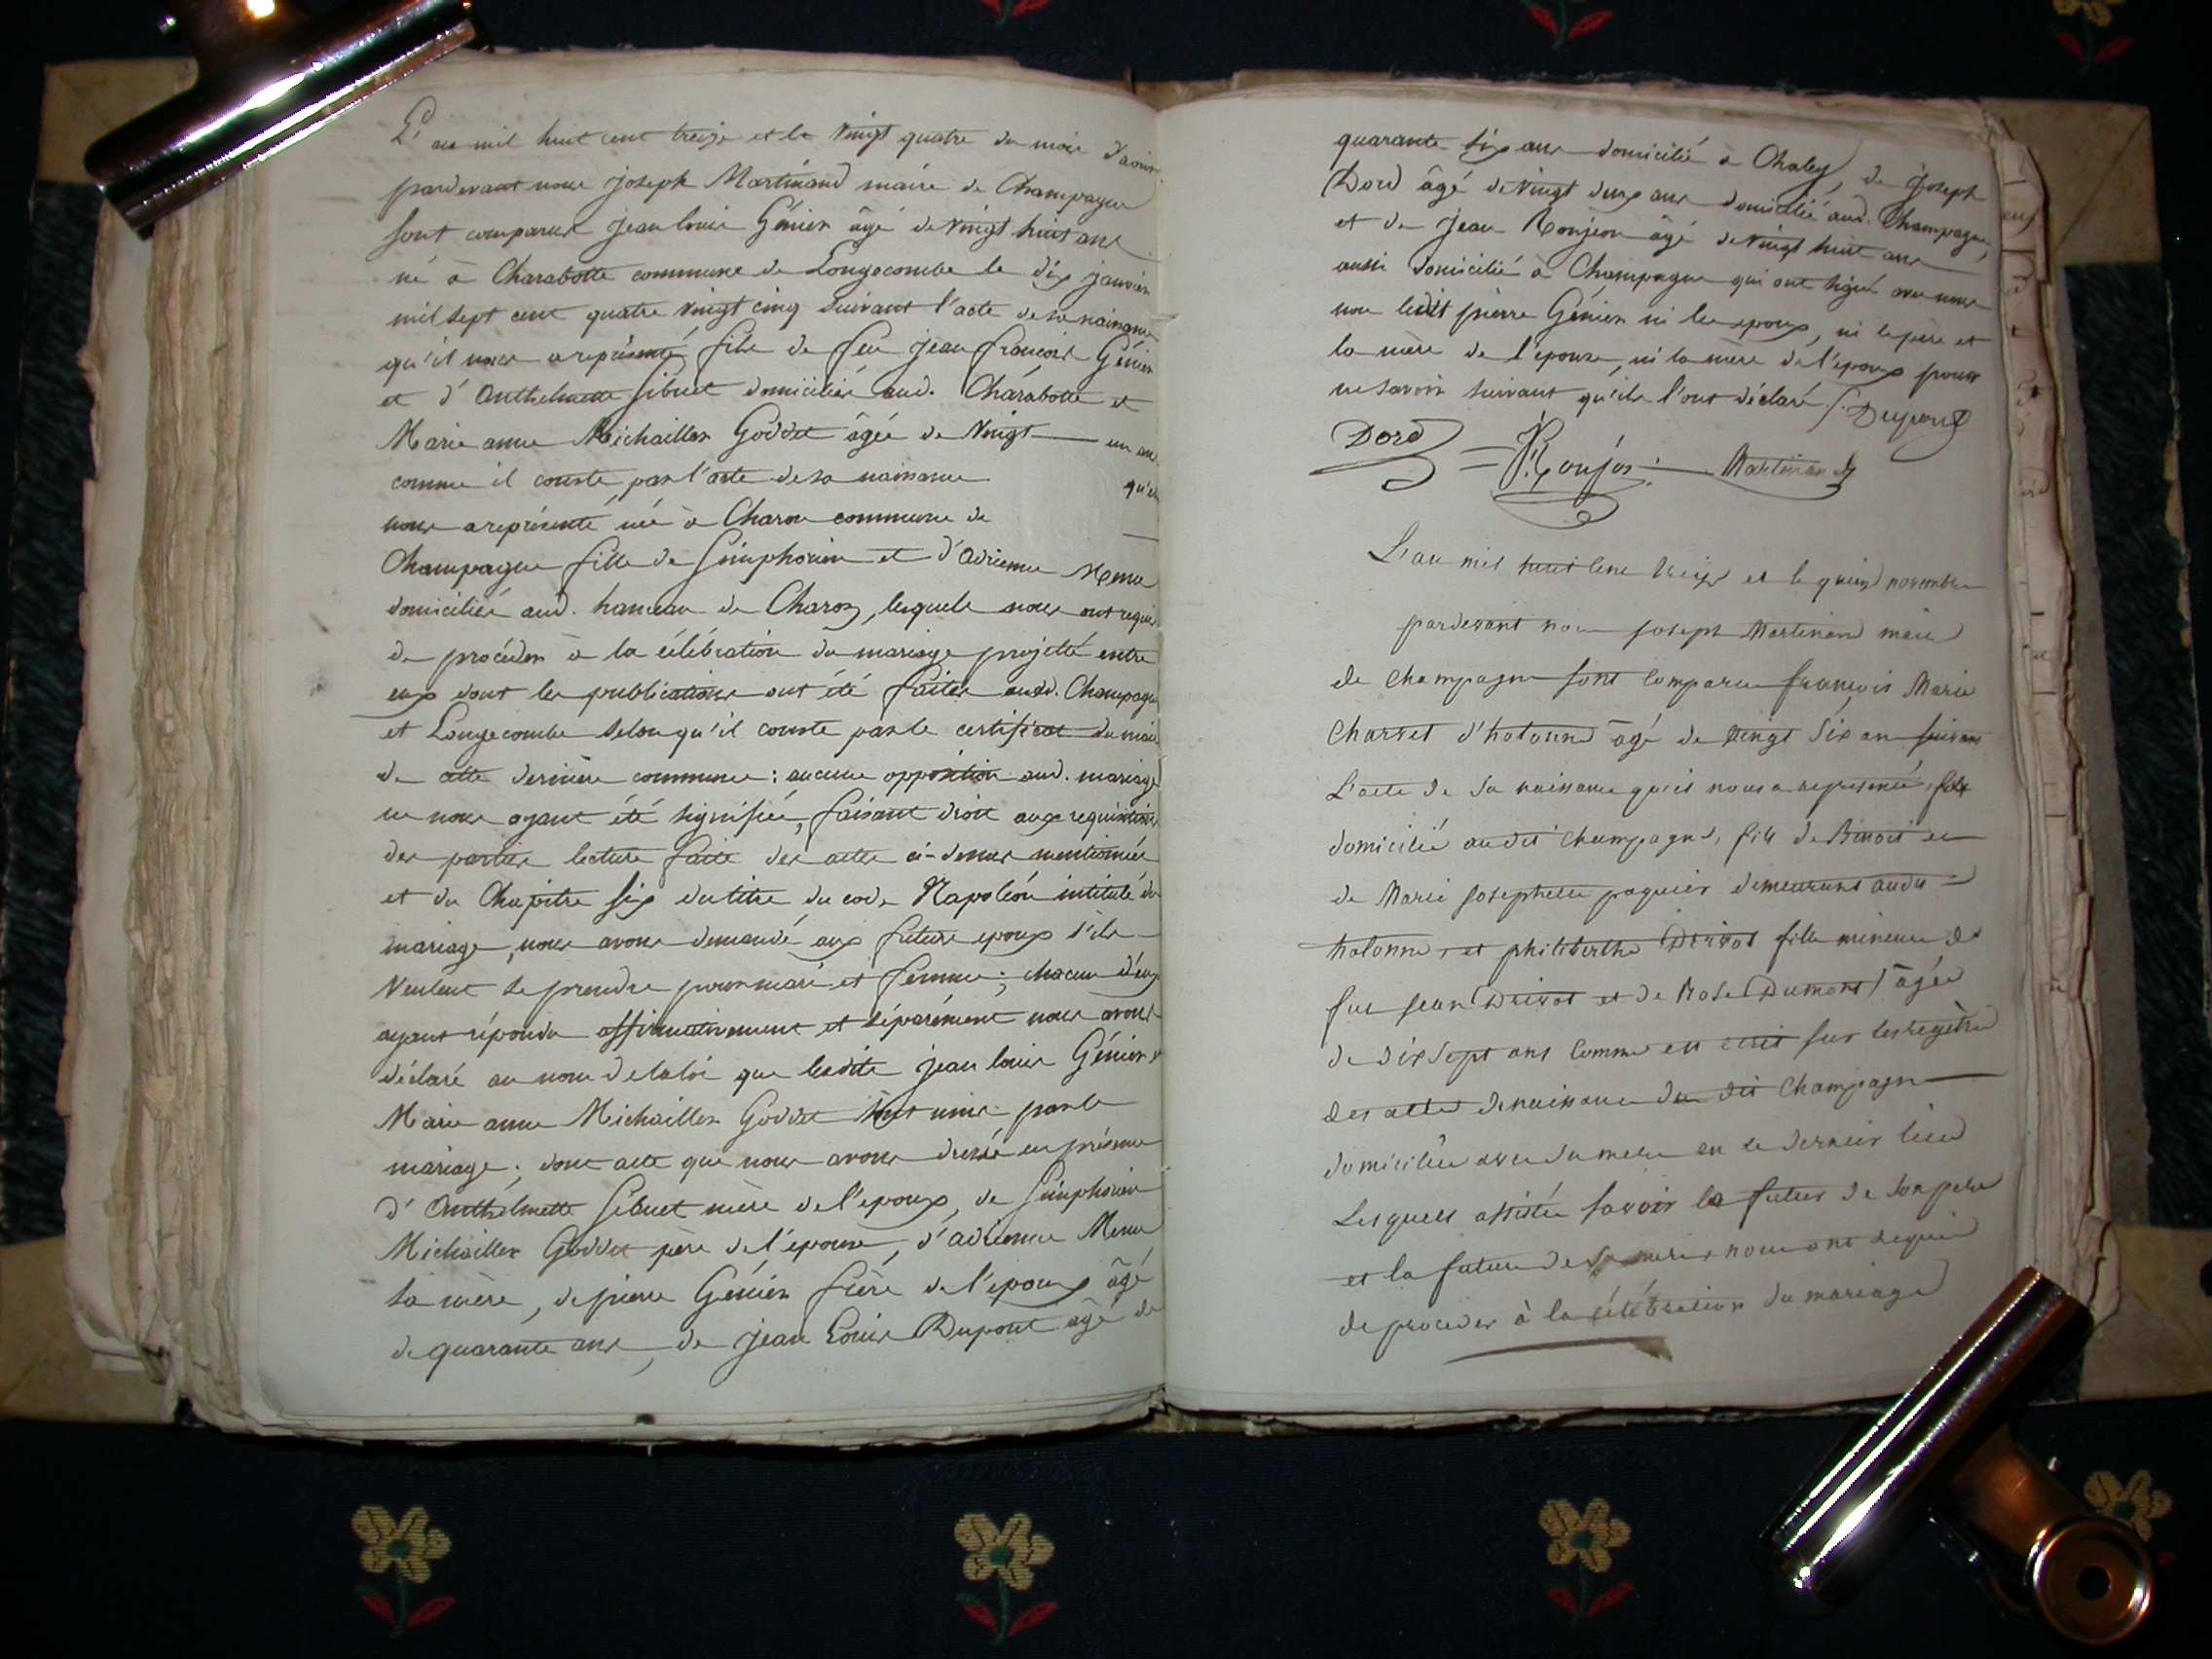 L'an mil huit cent treize et le vingt quatre du mois d'aoust
pardevant nous Joseph Martinand maire de Champagne
sont comparus Jean louis Génier âgé de vingt huit ans
né à Charabotte commune de Longecombe le dix janvier
mil sept cent quatre vingt cinq suivant l'acte de sa naissance
qu'il nous a représenté fils de feu Jean françois Génier
et d'Anthelmette Sibuet domiciliés aud. Charabotte et
Marie anne Michaillex Goddet âgée de Vingt — un ans
comme il conste par l'acte de sa naissance qu'elle
nous a représenté née à Charon commune de
Champagne fille de Simphorien et d'adrienne Memu
domiciliés aud. hameau de Charon, lesquels nous ont requis
de procéder à la célébration du mariage projetté entre
eux dont les publications ont été faites aud. Champagne
et Longecombe selon qu'il conste par le certificat du maire
de cette dernière commune : aucune opposition aud. mariage
ne nous ayant été signifiée, faisant droit aux requisitions
des parties lecture faite des actes ci-dessus mentionnés
et du Chapitre six du titre du code Napoléon intitulé du
mariage, nous avons demandé aux futurs epoux s'ils
veulent se prendre pour mari et femme ; chacun d'eux
ayant répondu affirmativement et séparément nous avons
déclaré au nom de la loi que lesdits Jean louis Génier et
Marie anne Michaillex Goddet sont unis par le
mariage ; dont acte que nous avons dressé en présence
d'Anthelmette Sibuet mère de l'epoux, de Simphorien
Michaillex Goddet père de l'epouse, d'adrienne Memu
sa mère, de pierre Génier frère de l'epoux âgé
de quarante ans, de Jean Louis Dupont âgé de
quarante six ans domicilié à Chaley, de Joseph
Dord âgé de vingt deux ans domicilié aud. Champagne,
et de Jean Ronjon âgé de vingt huit ans
aussi domicilié à Champagne qui ont signé avec nous
non ledit pierre Génier ni les epoux, ni le père et
la mère de l'epouse, ni la mère de l'epoux pour
ne savoir suivant qu'ils l'ont déclaré /. Dupont
Dord = Ronjon Martinand
L'an mil huit cent treize et le quinze novembre
pardevant nous joseph Martinand maire
de Champagne sont comparus françois Marie
Charvet d'hotonne âgé de vingt six an suivant
L'acte de sa naissance qu'il nous a représenté
domicilié audit Champagne, fils de Binoit et
de Marie josephette paquier demeurant audit
hotonne, et philiberthe fille mineure de
feu jean et de Rose Dumont âgée
de dix sept ans comme est écrit sur les registres
des actes de naissance du dit Champagne
domiciliée avec sa mere en ce dernier lieu
Lesquels assistée savoir le futur de son pere
et la future de sa mere nous ont requis
de proceder à la célébration du mariage